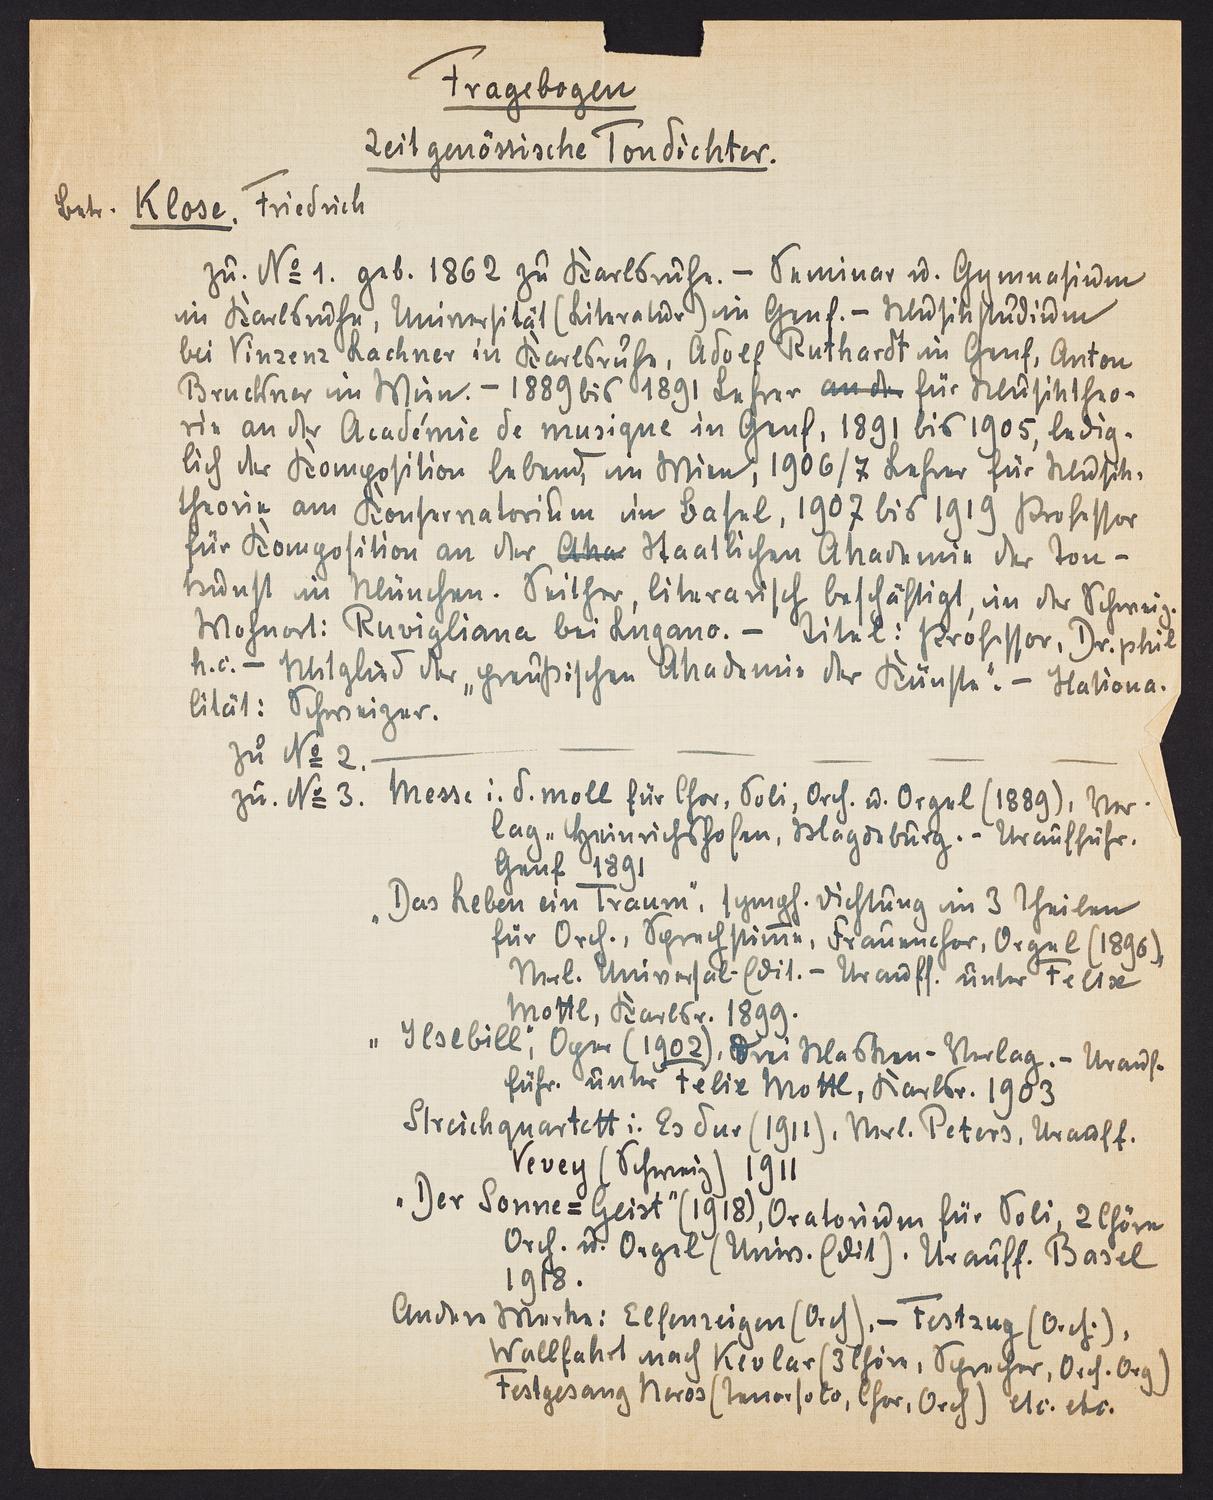 Fragebogen
Zeitgenössische Tondichter.
Betr. Klose, Friedrich
zu. No 1. geb. 1862 zu Karlsruhe. – Seminar u. Gymnasium
in Karlsruhe, Universität (Literatur) in Genf. – Musikstudium
bei Vinzenz Lachner in Karlsruhe, Adolf Ruthardt in Genf, Anton
Bruckner in Wien. – 1889 bis 1891 Lehrer an der für Musiktheo-
rie an der Académie de musique in Genf, 1891 bis 1905, ledig-
lich der Komposition lebend, in Wien; 1906/7 Lehrer für Musik-
theorie am Konservatorium in Basel, 1907 bis 1919 Professor
für Komposition an der Aka Staatlichen Akademie der Ton-
kunst in München. Seither, literarisch beschäftigt, in der Schweiz.
Wohnort: Ruvigliana bei Lugano. – Titel: Professor, Dr. phil
h.c. – Mitglied der „preußischen Akademie der Künste". – Nationa-
lität: Schweizer.
zu No 2. — — — — — —
zu. No 3. Messe i. d. moll für Chor, Soli, Orch. u. Orgel (1889), Ver-
lag „ Heinrichshofen, Magdeburg. – Uraufführ.
Genf 1891
„Das Leben ein Traum", symph. Dichtung in 3 Theilen
für Orch., Sprechstimme, Frauenchor, Orgel (1896),
Verl. Universal-Edit. – Urauff. unter Felix
Mottl, Karlsr. 1899.
„ Ilsebill", Oper (1902), Drei Masken-Verlag. – Urauf-
führ. unter Felix Mottl, Karlsr. 1903
Streichquartett i. Es dur (1911), Verl. Peters, Urauff.
Vevey (Schweiz) 1911
„Der Sonne=Geist" (1918), Oratorium für Soli, 2 Chöre
Orch. u. Orgel (Univs. Edit). Urauff. Basel
1918.
Andere Werke: Elfenreigen (Orch), – Festzug (Orch.),
Wallfahrt nach Kevlar (3 Chöre, Sprecher, Orch. Org)
Festgesang Neros (Tenorsolo, Chor, Orch) etc. etc.